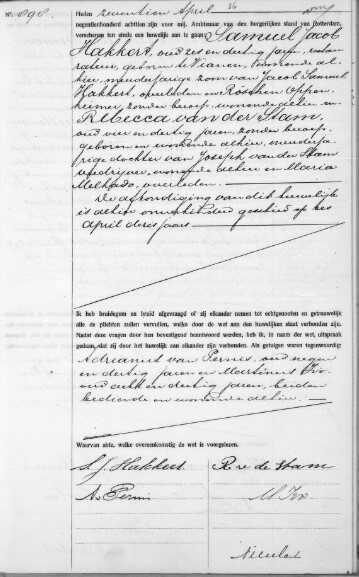 Heden zeventien April
negentienhonderd achttien zijn voor mij, Ambtenaar van den burgerlijken stand van Rotterdam,
verschenen ten einde een huwelijk aan te gaan: Samuel Jacob
Hakkert, oud zes en dertig jaren,
geboren te Vianen, wonende al-
hier, meerderjarige zoon van Jacob Samuel
Hakkert, overleden en Röschen Oppen-
heimer, zonder beroep, wonende alhier en
Rebecca van der Stam,
oud vier en dertig jaren, zonder beroep,
geboren en wonende alhier, meerderja-
rige dochter van Joseph van der Stam
wonende alhier en Maria
Melhado, overleden.
De afkondiging van dit huwelijk
is alhier onverhinderd geschied op zes
April dezes jaars
Ik heb bruidegom en bruid afgevraagd of zij elkander nemen tot echtgenooten en getrouwelijk
alle de plichten zullen vervullen, welke door de wet aan den huwelijken staat verbonden zijn.
Nadat deze vragen door hen bevestigend beantwoord werden, heb ik, in naam der wet, uitspraak
gedaan, dat zij door het huwelijk aan elkander zijn verbonden. Als getuigen waren tegenwoordig:
Adrianus van Pernis, oud negen
en dertig jaren en Martinus
oud acht en dertig jaren, beiden
bediende en wonende alhier.
Waarvan akte, welke overeenkomstig de wet is voorgelezen.
S. J. Hakkert R. v. d. Stam